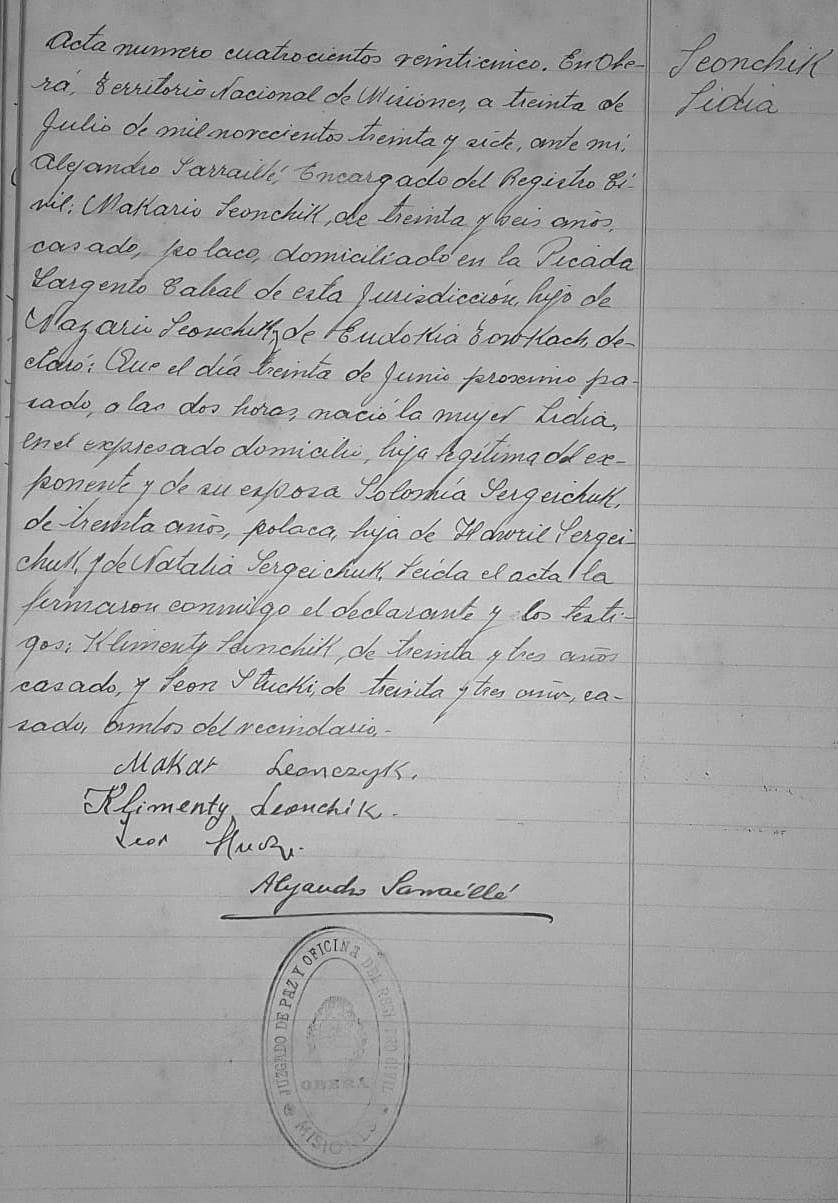 Acta numero cuatrocientos veinticinco. En Obe-
rá, Territorio Nacional de Misiones, a treinta de
Julio de mil novecientos treinta y siete, ante mi,
Alejandro Sarraillé, Encargado del Registro Ci-
vil; Makario Leonchik, de treinta y seis años,
casado, polaco, domiciliado en la Picada
Sargento Cabral de esta Jurisdicción, hijo de
Nazario Leonchik y de Eudokia Towkach, de-
claró: Que el día treinta de Junio proximo pa-
sado, a las dos horas, nació la mujer Lidia,
en el expresado domicilio, hija legitima del ex-
ponente y de su esposa Solomía Sergeichuk,
de treinta años, polaca, hija de Hawril Sergei-
chuk y de Natalia Sergeichuk. Leída el acta la
firmaron conmigo el declarante y los testi-
gos: Klimenty Leonchik, de treinta y tres años
casado, y Leon Stucki, de treinta y tres años, ca-
sado, ambos del vecindario.-
Makar Leonczyk.
Klimenty Leonchik.
Leon
Alejandro Sarraillé
Leonchik
Lidia
JUZGADO DE PAZ Y OFICINA DEL REGISTRO CIVIL
OBERA
MISIONES